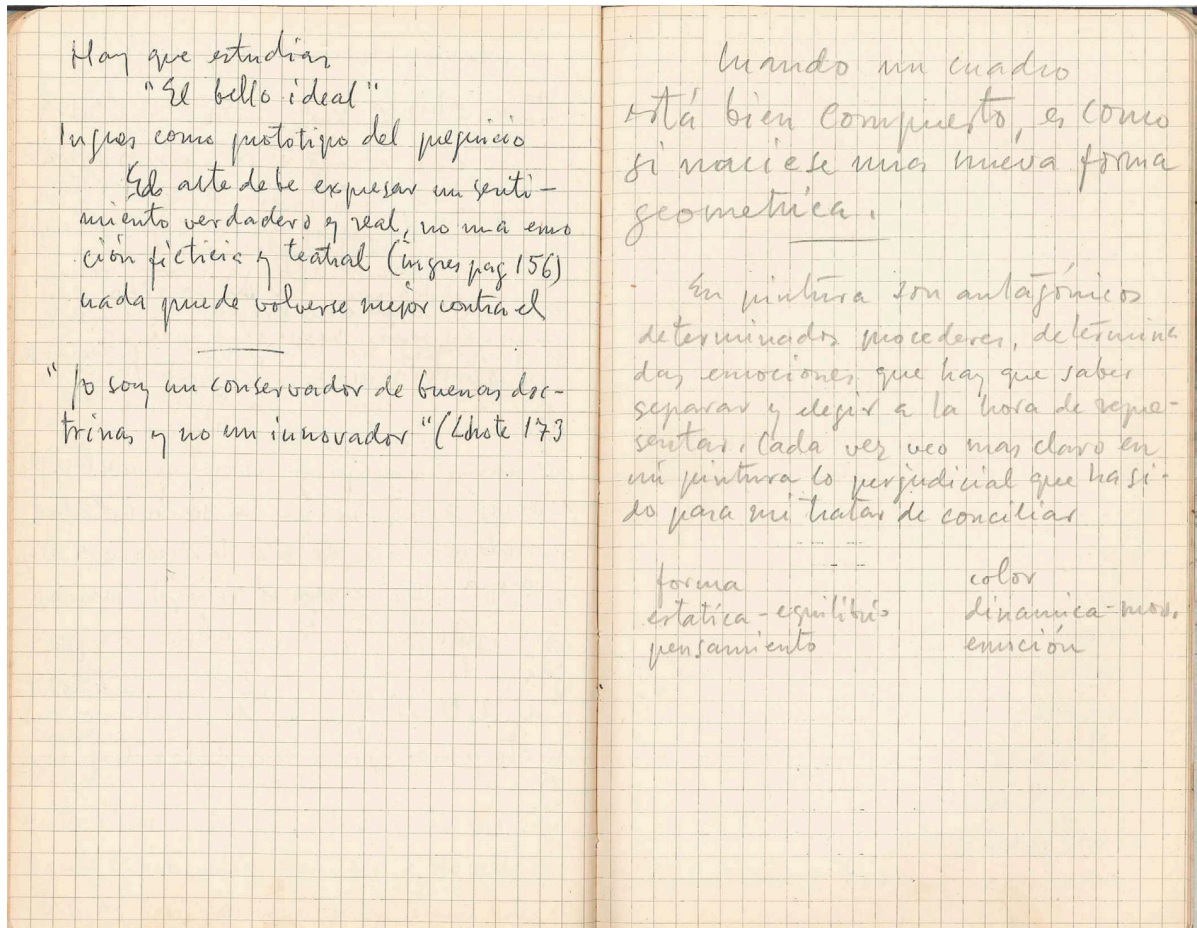 Hay que estudiar
"El bello ideal"
Ingres como prototipo del prejuicio
El arte debe expresar un senti-
miento verdadero y real, no una emo
ción ficticia y teatral (ingres pag 156)
nada puede volverse mejor contra el
"Yo soy un conservador de buenas doc-
trinas y no un innovador" (Lhote 173
Cuando un cuadro
está bien compuesto, es como
si naciese una nueva forma
geometrica.
En pintura son antagónicos
determinados procederes, determina
das emociones que hay que saber
separar y elegir a la hora de repre-
sentar. Cada vez veo mas claro en
mi pintura lo perjudicial que ha si-
do para mi tratar de conciliar
forma color
estatica - equilibrio dinamica - mov.
pensamiento emoción